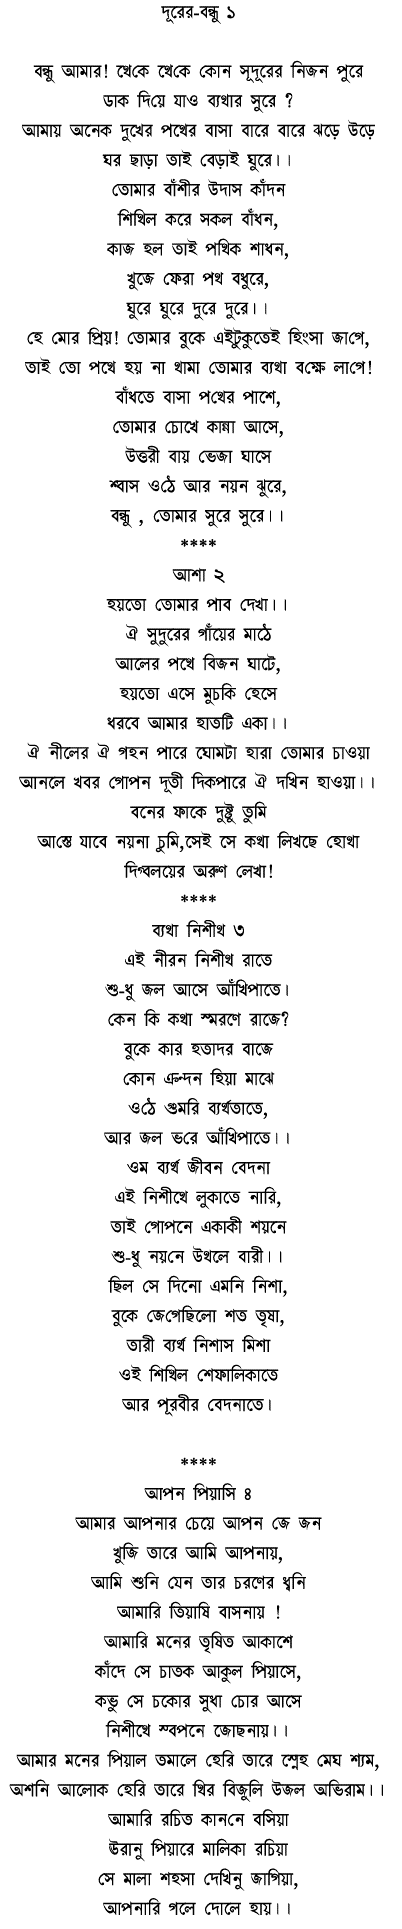 দূরের-বন্ধু ১
বন্ধু আমার! থেকে থেকে কোন সূদূরের নিজন পুরে
ডাক দিয়ে যাও ব্যথার সুরে ?
আমায় অনেক দুখের পথের বাসা বারে বারে ঝড়ে উড়ে
ঘর ছাড়া তাই বেড়াই ঘুরে।।
তোমার বাঁশীর উদাস কাঁদন
শিথিল করে সকল বাঁধন,
কাজ হল তাই পথিক শাধন,
খুজে ফেরা পথ বধুরে,
ঘুরে ঘুরে দুরে দুরে।।
হে মোর প্রিয়! তোমার বুকে এইটুকুতেই হিংসা জাগে,
তাই তো পথে হয় না থামা তোমার ব্যথা বক্ষে লাগে!
বাঁধতে বাসা পথের পাশে,
তোমার চোখে কান্না আসে,
উত্তরী বায় ভেজা ঘাসে
শ্বাস ওঠে আর নয়ন ঝুরে,
বন্ধু , তোমার সুরে সুরে।।
****
আশা ২
হয়তো তোমার পাব দেখা।।
ঐ সুদুরের গাঁয়ের মাঠে
আলের পথে বিজন ঘাটে,
হয়তো এসে মুচকি হেসে
ধরবে আমার হাতটি একা।।
ঐ নীলের ঐ গহন পারে ঘোমটা হারা তোমার চাওয়া
আনলে খবর গোপন দূতী দিকপারে ঐ দখিন হাওয়া।।
বনের ফাকে দুষ্টু তুমি
আস্তে যাবে নয়না চুমি,সেই সে কথা লিখছে হোথা
দিগ্বলয়ের অরুণ লেখা!
****
ব্যথা নিশীথ ৩
এই নীরন নিশীথ রাতে
শু-ধু জল আসে আঁখিপাতে।
কেন কি কথা স্মরণে রাজে?
বুকে কার হতাদর বাজে
কোন ক্রন্দন হিয়া মাঝে
ওঠে গুমরি ব্যর্থতাতে,
আর জল ভরে আঁখিপাতে।।
ওম ব্যর্থ জীবন বেদনা
এই নিশীথে লুকাতে নারি,
তাই গোপনে একাকী শয়নে
শু-ধু নয়নে উথলে বারী।।
ছিল সে দিনো এমনি নিশা,
বুকে জেগেছিলো শত তৃষা,
তারী ব্যর্থ নিশাস মিশা
ওই শিথিল শেফালিকাতে
আর পূরবীর বেদনাতে।
****
আপন পিয়াসি ৪
আমার আপনার চেয়ে আপন জে জন
খুজি তারে আমি আপনায়,
আমি শুনি যেন তার চরণের ধ্বনি
আমারি তিয়াষি বাসনায় !
আমারি মনের তৃষিত আকাশে
কাঁদে সে চাতক আকুল পিয়াসে,
কভু সে চকোর সুধা চোর আসে
নিশীথে স্বপনে জোছনায়।।
আমার মনের পিয়াল তমালে হেরি তারে স্নেহ মেঘ শ্যম,
অশনি আলোক হেরি তারে থির বিজুলি উজল অভিরাম।।
আমারি রচিত কাননে বসিয়া
ঊরানু পিয়ারে মালিকা রচিয়া
সে মালা শহসা দেখিনু জাগিয়া,
আপনারি গলে দোলে হায়।।